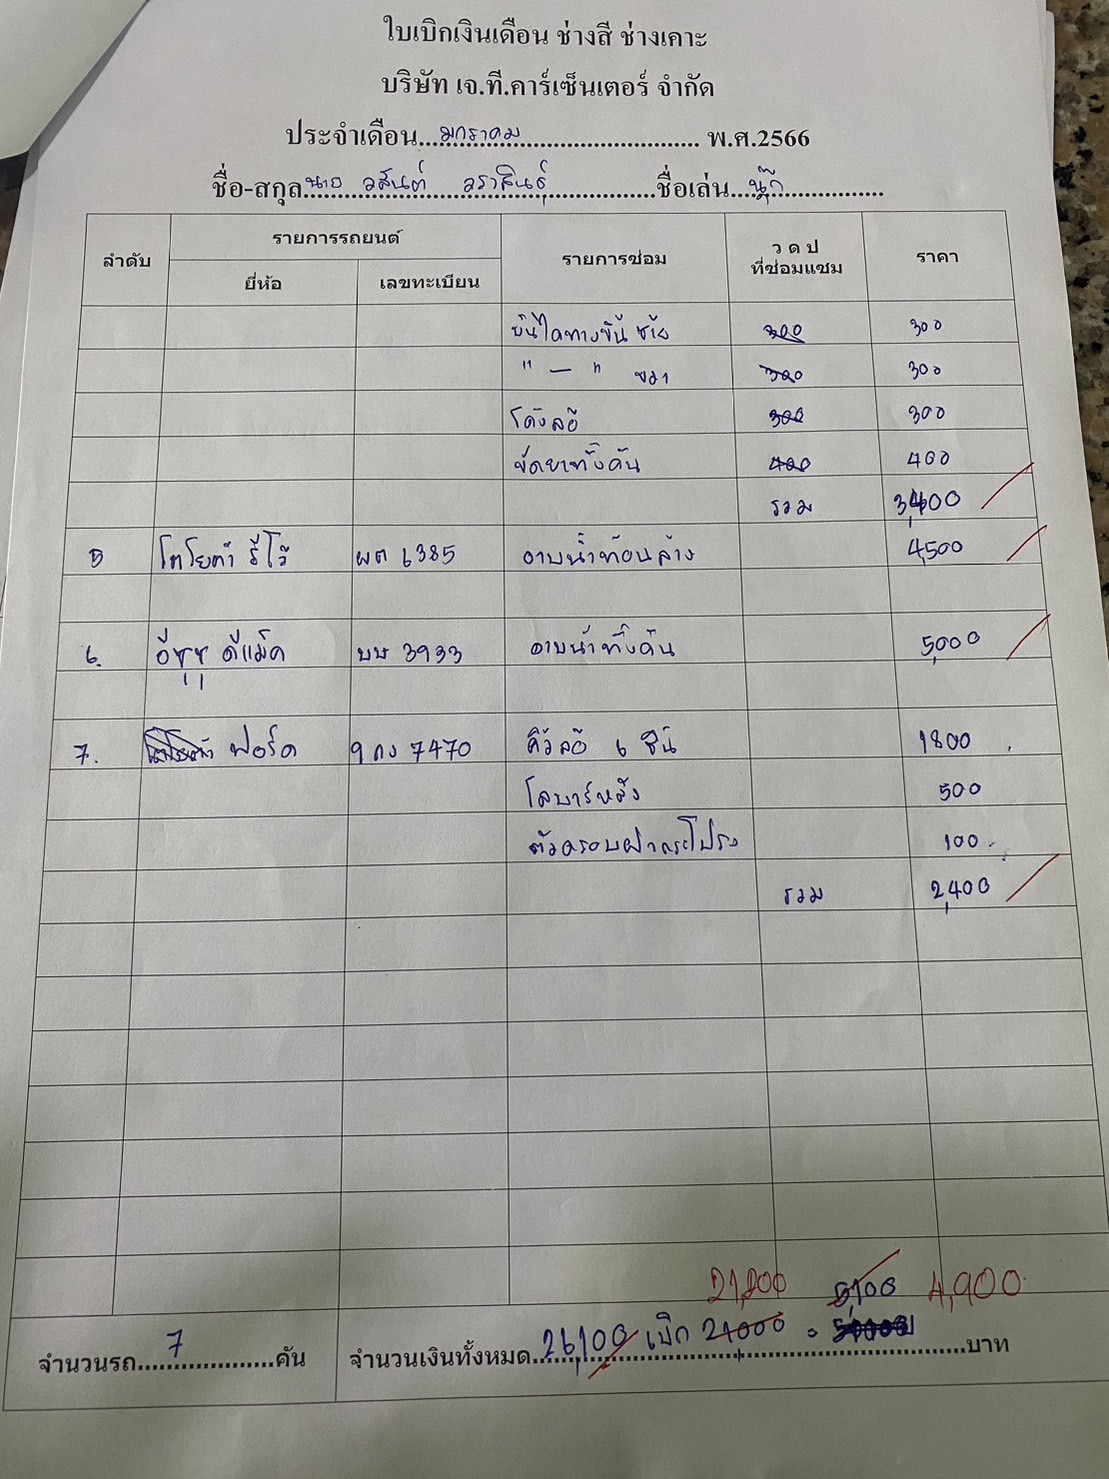 ใบเบิกเงินเดือน ช่างสี ช่างเคาะ
บริษัท เจ.ที.คาร์เซ็นเตอร์ จำกัด
ประจำเดือน...มกราคม................................ พ.ศ.2566
ชื่อ-สกุล นาย วสันต์ วราสินธุ์ ชื่อเล่น นุ๊ก
ลำดับ รายการรถยนต์ รายการซ่อม ว ด ป ที่ซ่อมแซม ราคา
ยี่ห้อ เลขทะเบียน
บันไดทางขึ้น ซ้าย 300 300
" — " ขวา 300 300
โด้งล้อ 300 300
ขัดยาทั้งคัน 400 400
รวม 3,400
5 โตโยต้า รีโว้ ผต 6385 อาบน้ำท่อนล่าง 4,500
6. อีซูซุ ดีแม็ค บษ 3933 อาบน้ำทั้งคัน 5,000
7. โตโยต้า ฟอร์ด 9 กง 7470 คิ้วล้อ 6 ชิ้น 1800
โลบาร์หลัง 500
ตัวครอบฝากระโปรง 100
รวม 2,400
21,200 5,100 4,900
จำนวนรถ 7 คัน จำนวนเงินทั้งหมด 26,100 เบิก 21000 = บาท